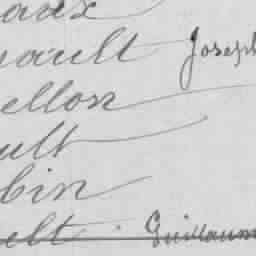 aux
ault Joseph
ellon
ult
bin
elt Guillaum